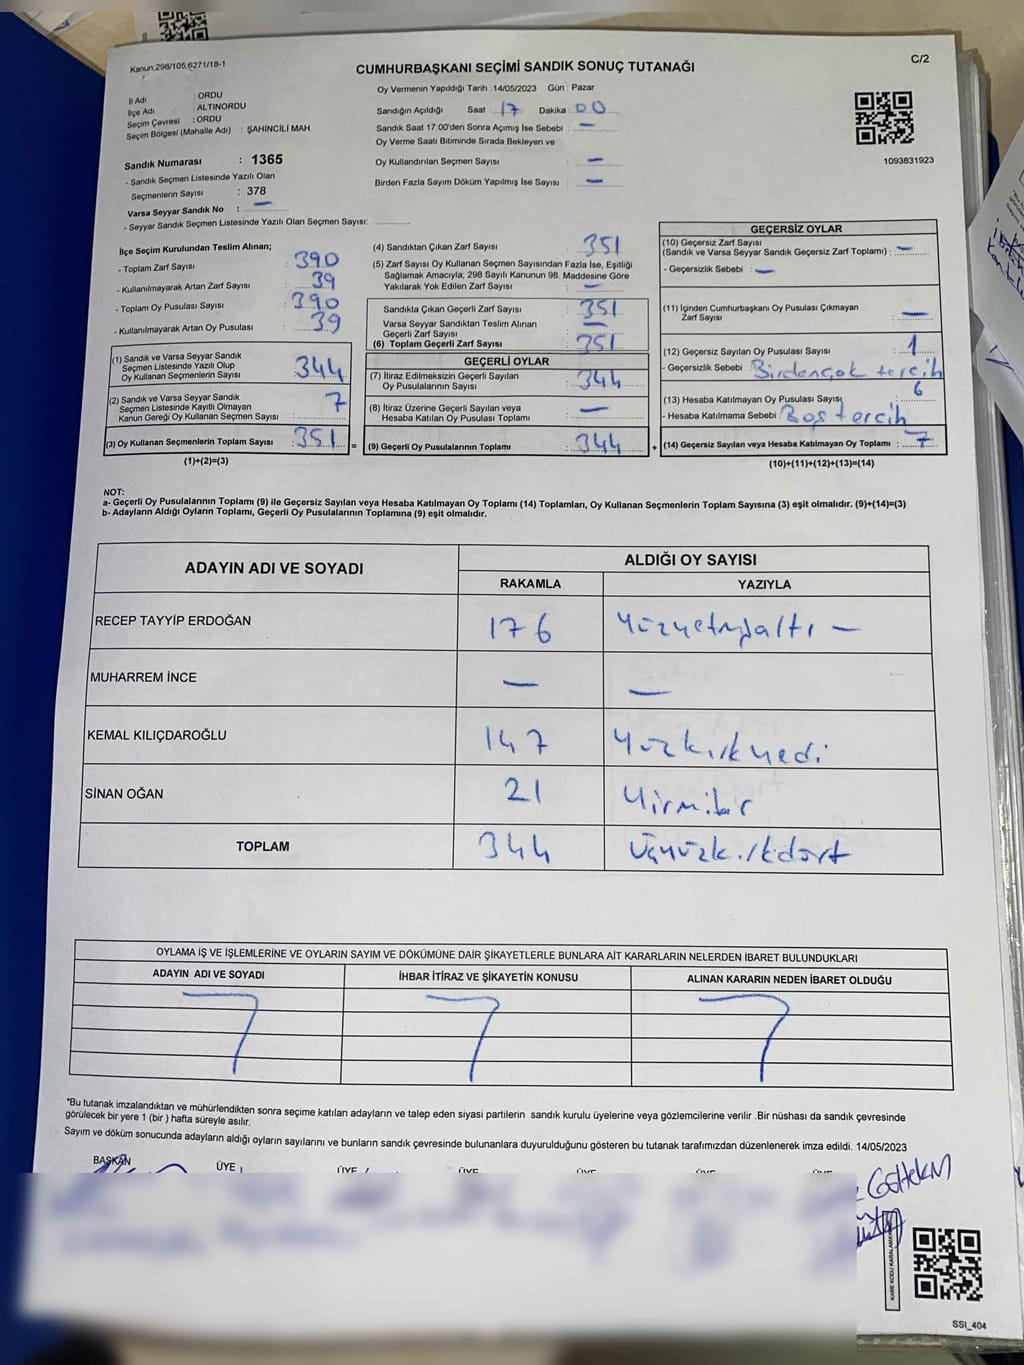 Kanun:298/105,6271/18-1
C/2
CUMHURBAŞKANI SEÇİMİ SANDIK SONUÇ TUTANAĞI
İl Adı : ORDU
İlçe Adı : ALTINORDU
Seçim Çevresi : ORDU
Seçim Bölgesi (Mahalle Adı) : ŞAHİNCİLİ MAH.
Sandık Numarası : 1365
- Sandık Seçmen Listesinde Yazılı Olan
Seçmenlerin Sayısı : 378
Varsa Seyyar Sandık No : —
- Seyyar Sandık Seçmen Listesinde Yazılı Olan Seçmen Sayısı: ............
Oy Vermenin Yapıldığı Tarih :14/05/2023 Gün : Pazar
Sandığın Açıldığı Saat : 17 Dakika : 00
Sandık Saat 17:00'den Sonra Açımış İse Sebebi : —
Oy Verme Saati Bitiminde Sırada Bekleyen ve
Oy Kullandırılan Seçmen Sayısı : —
Birden Fazla Sayım Döküm Yapılmış İse Sayısı : —
1093831923
İlçe Seçim Kurulundan Teslim Alınan;
- Toplam Zarf Sayısı : 390
- Kullanılmayarak Artan Zarf Sayısı : 39
- Toplam Oy Pusulası Sayısı : 390
- Kullanılmayarak Artan Oy Pusulası : 39
(1) Sandık ve Varsa Seyyar Sandık
Seçmen Listesinde Yazılı Olup
Oy Kullanan Seçmenlerin Sayısı : 344
(2) Sandık ve Varsa Seyyar Sandık
Seçmen Listesinde Kayıtlı Olmayan
Kanun Gereği Oy Kullanan Seçmen Sayısı : 7
(3) Oy Kullanan Seçmenlerin Toplam Sayısı : 351 =
(1)+(2)=(3)
(4) Sandıktan Çıkan Zarf Sayısı : 351
(5) Zarf Sayısı Oy Kullanan Seçmen Sayısından Fazla İse, Eşitliği
Sağlamak Amacıyla; 298 Sayılı Kanunun 98. Maddesine Göre
Yakılarak Yok Edilen Zarf Sayısı : —
Sandıkta Çıkan Geçerli Zarf Sayısı : 351
Varsa Seyyar Sandıktan Teslim Alınan
Geçerli Zarf Sayısı : —
(6) Toplam Geçerli Zarf Sayısı : 351
GEÇERLİ OYLAR
(7) İtiraz Edilmeksizin Geçerli Sayılan
Oy Pusulalarının Sayısı : 344
(8) İtiraz Üzerine Geçerli Sayılan veya
Hesaba Katılan Oy Pusulası Toplamı : —
(9) Geçerli Oy Pusulalarının Toplamı : 344 +
GEÇERSİZ OYLAR
(10) Geçersiz Zarf Sayısı
(Sandık ve Varsa Seyyar Sandık Geçersiz Zarf Toplamı) : —
- Geçersizlik Sebebi : —
(11) İçinden Cumhurbaşkanı Oy Pusulası Çıkmayan
Zarf Sayısı : —
(12) Geçersiz Sayılan Oy Pusulası Sayısı : 1
- Geçersizlik Sebebi : Birdençok tercih
(13) Hesaba Katılmayan Oy Pusulası Sayısı : 6
- Hesaba Katılmama Sebebi : Boş tercih
(14) Geçersiz Sayılan veya Hesaba Katılmayan Oy Toplamı : 7
(10)+(11)+(12)+(13)=(14)
NOT:
a- Geçerli Oy Pusulalarının Toplamı (9) ile Geçersiz Sayılan veya Hesaba Katılmayan Oy Toplamı (14) Toplamları, Oy Kullanan Seçmenlerin Toplam Sayısına (3) eşit olmalıdır. (9)+(14)=(3)
b- Adayların Aldığı Oyların Toplamı, Geçerli Oy Pusulalarının Toplamına (9) eşit olmalıdır.
ADAYIN ADI VE SOYADI ALDIĞI OY SAYISI
RAKAMLA YAZIYLA
RECEP TAYYİP ERDOĞAN 176 Yüzyetmişaltı —
MUHARREM İNCE — —
KEMAL KILIÇDAROĞLU 147 Yüzkırkyedi
SİNAN OĞAN 21 Yirmibir
TOPLAM 344 Üçyüzkırkdört
OYLAMA İŞ VE İŞLEMLERİNE VE OYLARIN SAYIM VE DÖKÜMÜNE DAİR ŞİKAYETLERLE BUNLARA AİT KARARLARIN NELERDEN İBARET BULUNDUKLARI
ADAYIN ADI VE SOYADI İHBAR İTİRAZ VE ŞİKAYETİN KONUSU ALINAN KARARIN NEDEN İBARET OLDUĞU
*Bu tutanak imzalandıktan ve mühürlendikten sonra seçime katılan adayların ve talep eden siyasi partilerin sandık kurulu üyelerine veya gözlemcilerine verilir .Bir nüshası da sandık çevresinde
görülecek bir yere 1 (bir ) hafta süreyle asılır.
Sayım ve döküm sonucunda adayların aldığı oyların sayılarını ve bunların sandık çevresinde bulunanlara duyurulduğunu gösteren bu tutanak tarafımızdan düzenlenerek imza edildi. 14/05/2023
BAŞKAN ÜYE ÜYE ÜYE ÜYE ÜYE ÜYE
SSI_404